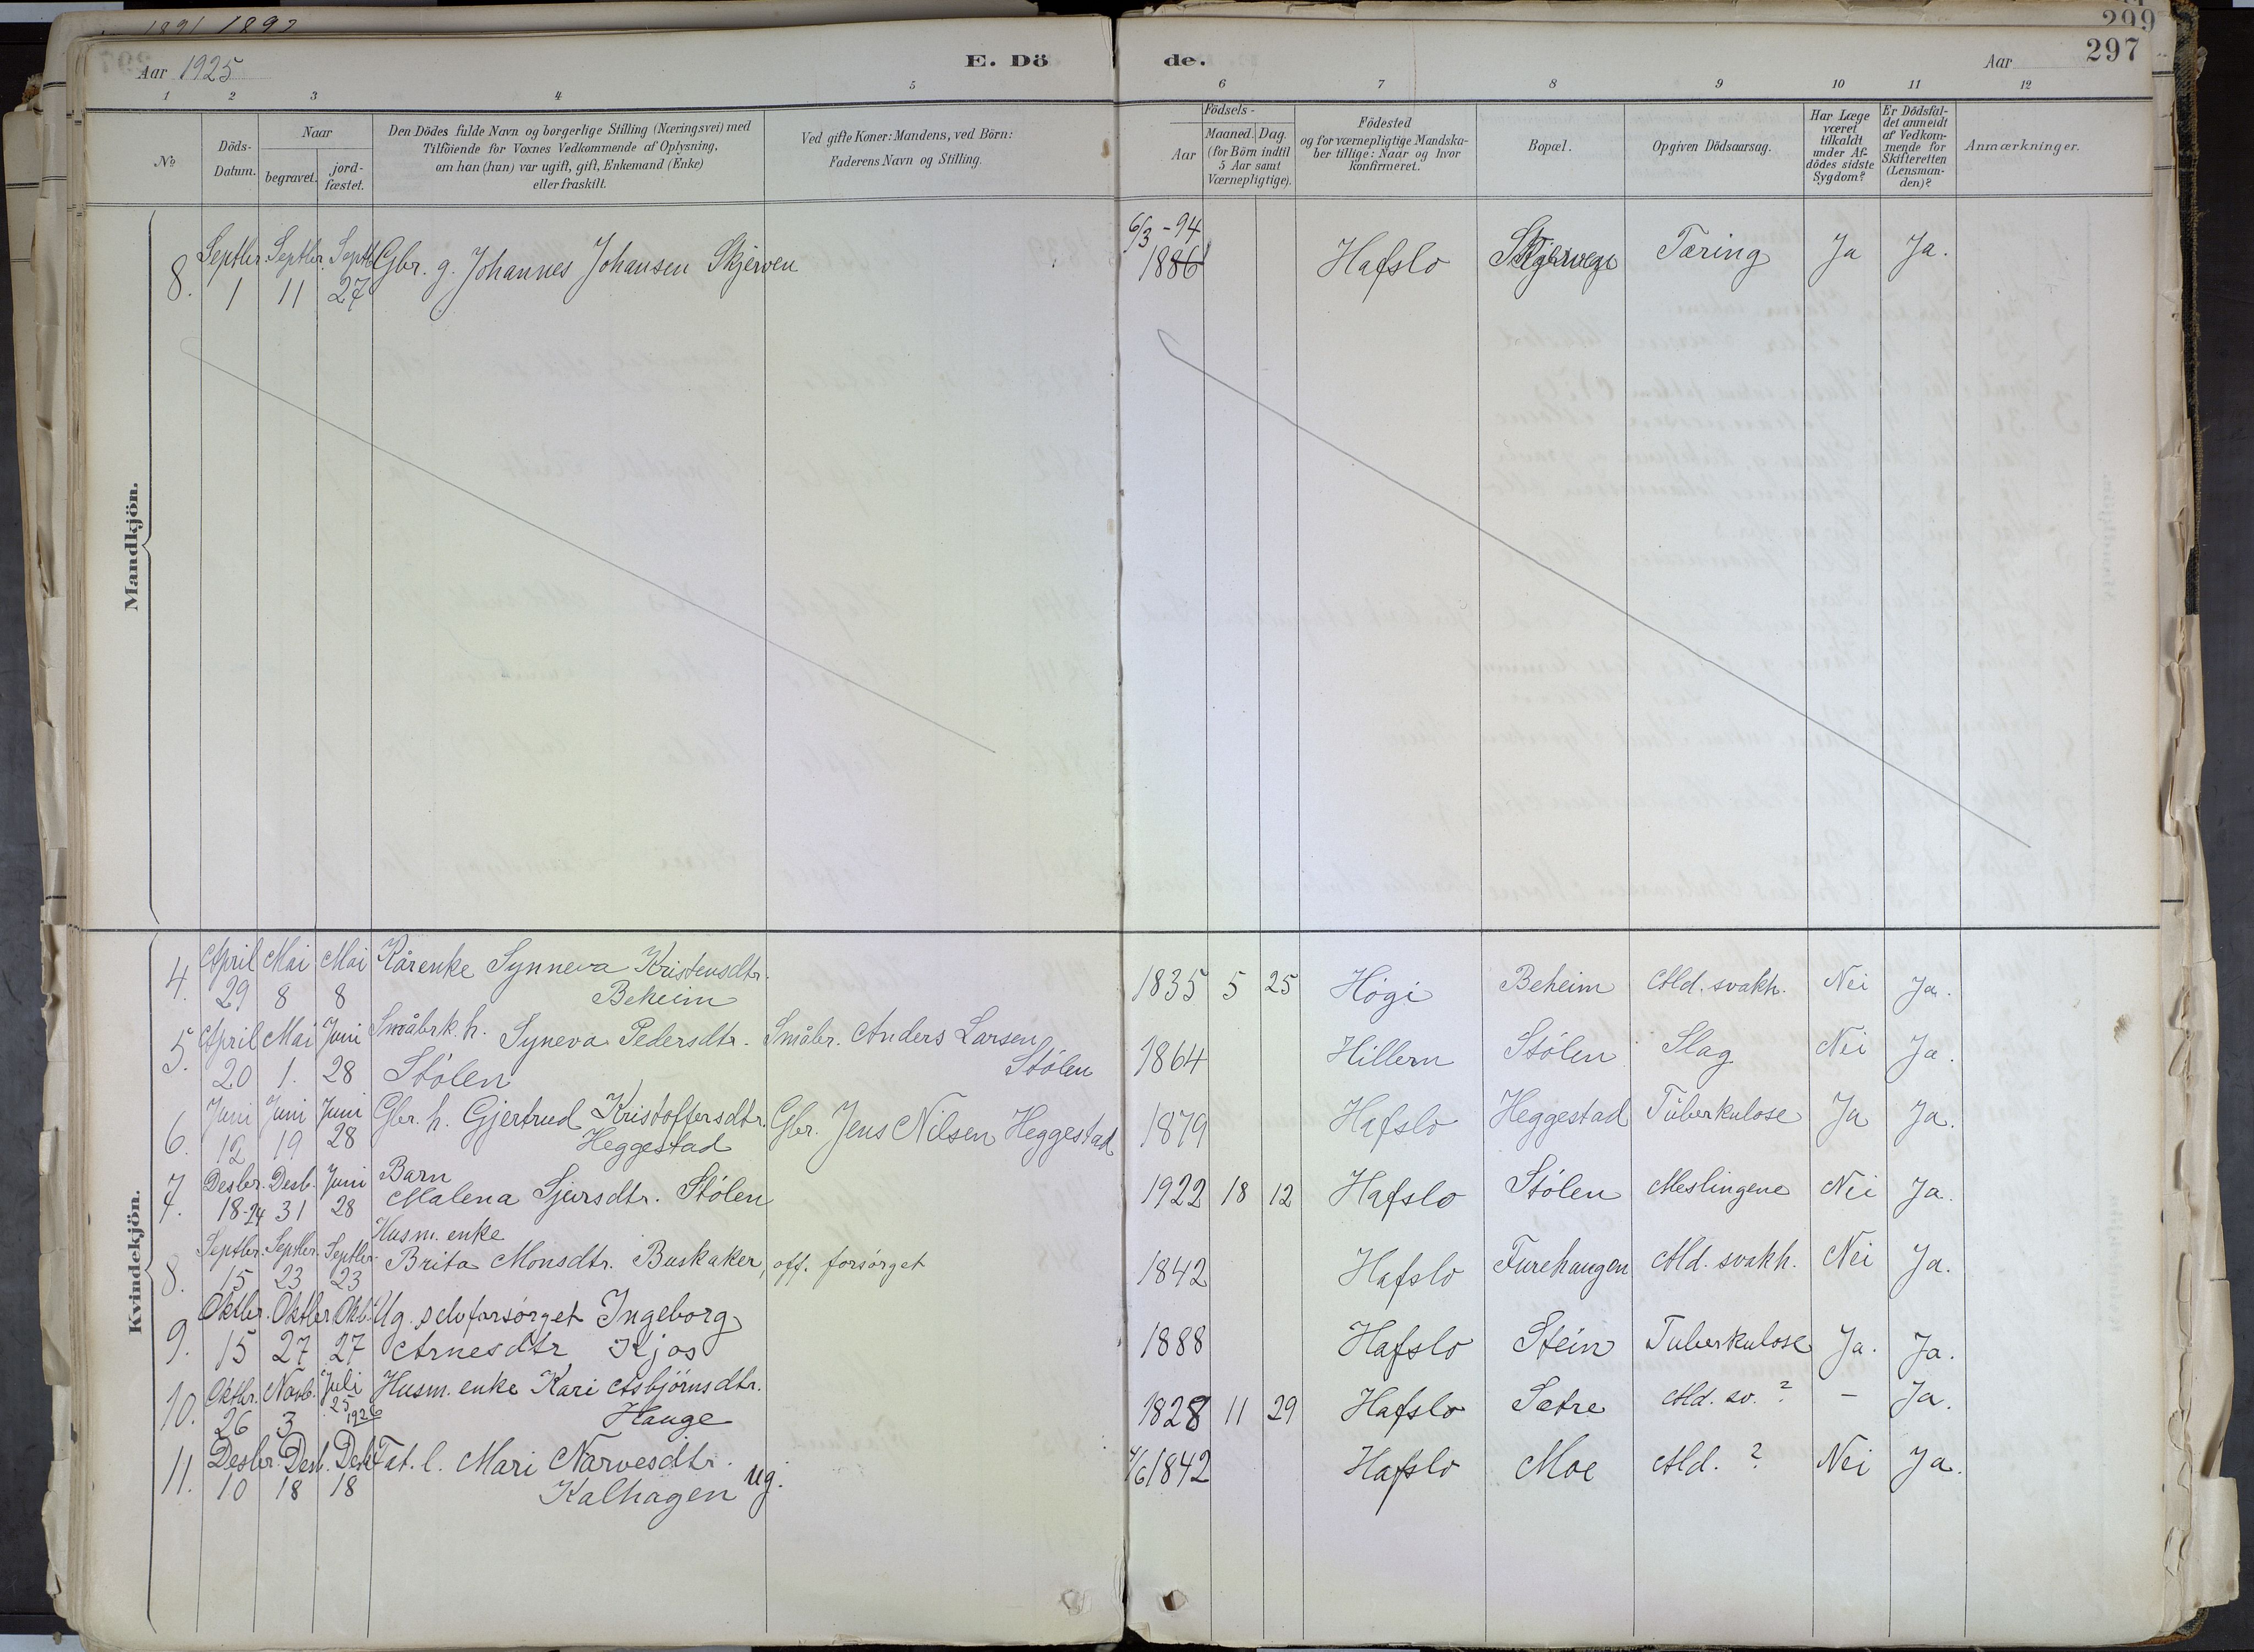 1891 1892
299
297
Aar 1925
E. Dö
de.
Aar
1 2 3 4 5 6 7 8 9 10 11 12
No
Döds-
Datum.
Naar
begravet.
jord-
fæstet.
Den Dödes fulde Navn og borgerlige Stilling (Næringsvei) med
Tilföiende for Voxnes Vedkommende af Oplysning,
om han (hun) var ugift, gift, Enkemand (Enke)
eller fraskilt.
Ved gifte Koner: Mandens, ved Börn:
Faderens Navn og Stilling.
Födsels-
Aar
Maaned. Dag.
(for Börn indtil
5 Aar samt
Værnepligtige).
Födested
og for værnepligtige Mandska-
ber tillige: Naar og hvor
konfirmeret.
Bopæl.
Opgiven Dödsaarsag.
Har Læge
været
tilkaldt
under Af-
dödes sidste
Sygdom?
Er Dödsfal-
det anmeldt
af Vedkom-
mende for
Skifteretten
(Lensman-
den)?
Anmærkninger.
Mandkjön.
8. Septbr. Septbr. Septb. Gbr. g. Johannes Johansen Skjerven
1 11 27
6/3 -94
1886 Hafslo Skjerven Tæring Ja Ja.
Kvindekjön.
4. April Mai Mai Kårenke Synneva Kristensdtr.
29 8 8 Beheim
1835 5 25 Högi Beheim Ald. svakh. Nei Ja.
5. April Mai Juni Småbrk. h. Syneva Pedersdtr. Småbr. Anders Larsen
20 1. 28 Stölen Stölen
1864 Hillern Stölen Slag Nei Ja.
6. Juni Juni Juni Gbr. h. Gjertrud Kristoffersdtr. Gbr. Jens Nilsen Heggestad
12 19 28 Heggestad
1879 Hafslo Heggestad Tuberkulose Ja Ja.
7. Desbr. Desb. Juni Barn
18-24 31 28 Malena Sjursdtr. Stölen
1922 18 12 Hafslo Stölen Meslingene Nei Ja.
8. Septbr. Septbr. Septbr. Husm. enke
15 23 23 Brita Monsdtr. Buskaker, off. forsörget
1842 Hafslo Furehaugen Ald. svakh. Nei Ja.
9. Oktbr. Oktbr. Okb. Ug. selvforsörget Ingeborg
15 27 27 Arnesdtr Kjos
1888 Hafslo Stein Tuberkulose Ja. Ja.
10. Oktbr. Novb. Juli Husm. enke Kari Asbjörnsdtr.
26 3 25 1926 Hauge
1828 11 29 Hafslo Sætre Ald. sv. ? – Ja.
11. Desbr. Desb. Desb. Fat. l. Mari Narvesdtr.
10 18 18 Kalhagen ug.
4/6 1842 Hafslo Moe Ald. ? Nei Ja.